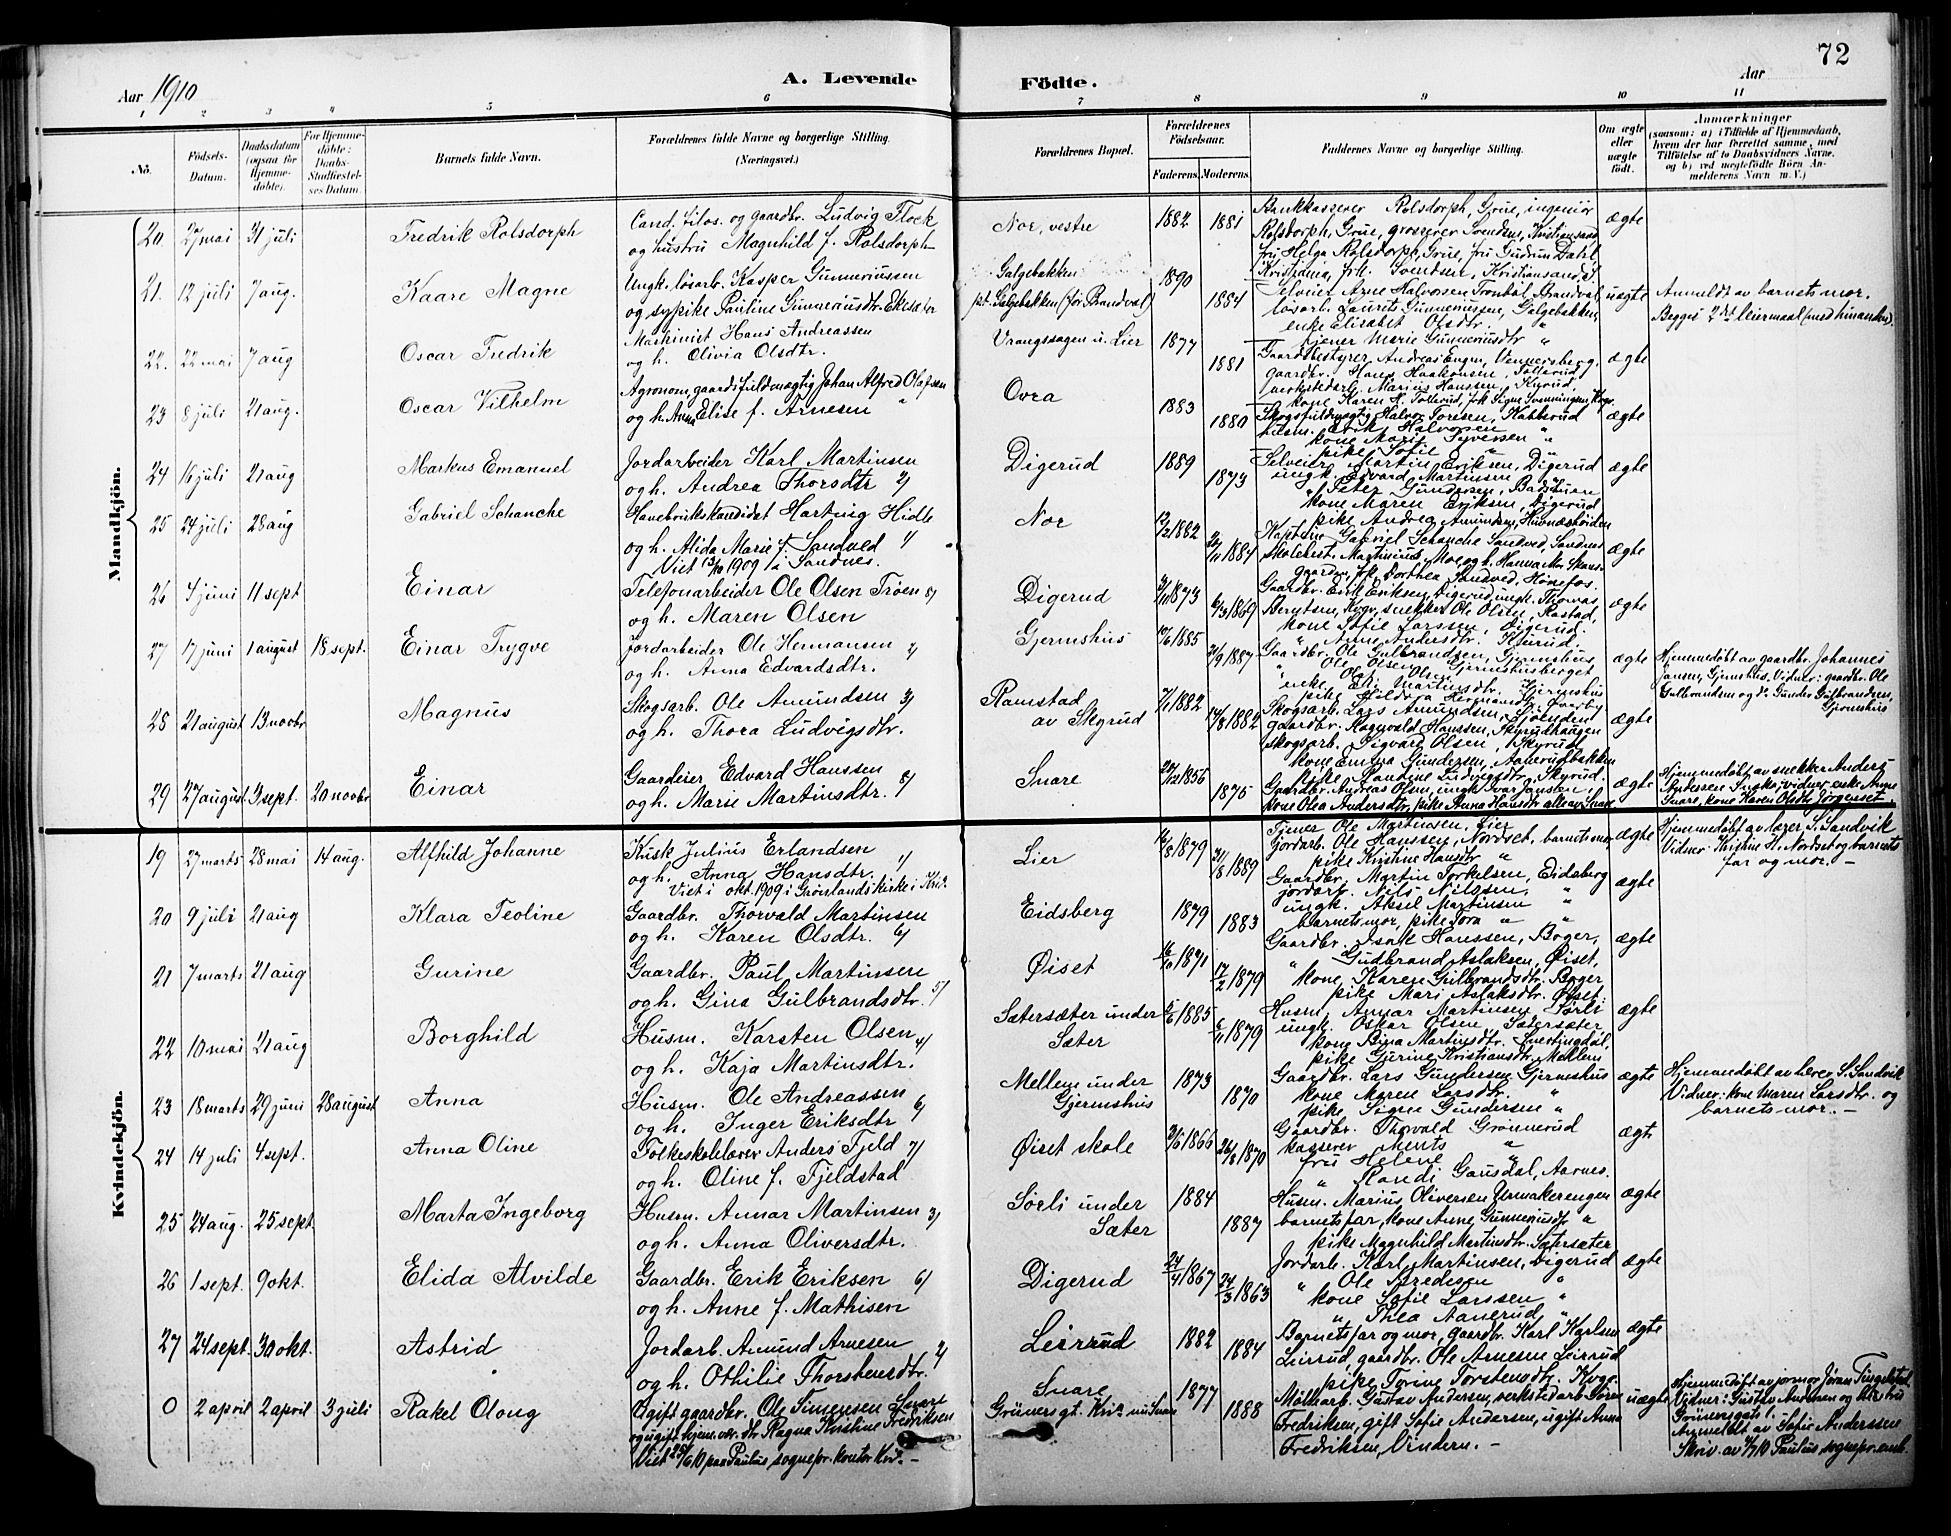 72
Aar 1910
A. Levende
Födte.
Aar
1 2 3 4 5 6 7 8 9 10 11
No.
Födsels-Datum.
Daabsdatum (ogsaa for Hjemme-döbte).
For Hjemme-döbte: Daabs-Stadfæstel-ses Datum.
Barnets fulde Navn.
Forældrenes fulde Navne og borgerlige Stilling. (Næringsvei.)
Forældrenes Bopæl.
Forældrenes Födselsaar.
Faderens.
Moderens.
Faddernes Navne og borgerlige Stilling.
Om ægte eller uægte födt.
Anmærkninger
(saasom: a) i Tilfælde af Hjemmedaab, hvem der har forrettet samme, med Tilföielse af to Daabsvidners Navne, og b) ved uægtefödte Börn An-melderens Navn m. V.)
Mandkjön.
20 27 mai 31 juli Fredrik Rolsdorph
Cand. filos. og gaardbr. Ludvig Flock
og hustru Magnhild f. Rolsdorph
Nor, vestre 1882 1881
Bankkasserer Rolsdorph, Grue, ingeniør
Rolsdorph, Grue, grosserer Svendsen, Kristiansand
fru Helga Rolsdorph, Grue, fru Gudrun Dahl
Kristiania, frk. Svendsen, Kristiansand S.
ægte
21. 12 juli 7 aug. Kaare Magne
Ungk. løsarb. Kasper Gunneriussen
og sypike Pauline Gunneriusdtr. Ekesæter
Galgebakken
pt. Galgebakken (før Brandval) 1890 1884
Selveier Arne Halvorsen Tronbøl, Brandval
løsarb. Laurits Gunneriussen, Galgebakken,
enke Elisabet Olsdtr. "
tjener Marie Gunneriusdtr "
uægte
Anmeldt av barnets mor.
Begges 2det leiermaal (med hinanden).
22. 22 mai 7 aug Oscar Fredrik
Maskinist Hans Andreassen
og h. Olivia Olsdtr.
Vrangssagen u. Lier 1877 1881
Gaardsbestyrer Andreas Engen, Vennersberg,
gaardbr. Hans Haakonsen, Tollerud,
verkstedarb. Marius Hanssen, Kyrud,
kone Karen H. Tollerud, frk Signe Svenningsen, Kgvr.
ægte
23 8 juli 21 aug. Oscar Vilhelm
Agronom, gaardsfuldmægtig Johan Alfred Olafsen
og h. Anna Elise f. Arnesen "
Ovra 1883 1880
Skogsfuldmægtig Halvor Toresen, Kabberud
husm. Erik Halvorsen "
kone Marie Syversen "
pike Sofie " "
ægte
24 16 juli 21 aug Markus Emanuel
Jordarbeider Karl Martinsen
og h. Andrea Thorsdtr 2/
Digerud 1889 1873
Selveier Martin Eriksen, Digerud
ungk. Edvard Martinsen "
" Peter Gundersen, Badstuen
kone Maren Eriksen, Digerud
pike Andrea Amundsen, Huvnæshøiden
ægte
25 24 juli 28 aug Gabriel Schanche
Havebrukskandidat Hartvig Hidle
og h. Alida Marie f. Sandved 1/
Viet 13/10 1909 i Sandnes.
Nor 12/2 1882 20/11 1884
Kaptein Gabriel Schanche Sandved, Sandnes
Malerest. Martinius Moe og h. Hanna Moe, Skans-
gaarden, frk. Dorthea Sandved, Hønefos.
ægte
26 4 juni 11 sept Einar
Telefonarbeider Ole Olsen Trøen 8/
og h. Maren Olsen
Digerud 3/11 1873 6/3 1869
Gaardbr. Erik Eriksen, Digerud, ungk. Thomas
Berntsen, Kgvr, snekker Ole Olsen, Rastad,
kone Sofie Larssen, Digerud.
" Anne Andersdtr. Kturud.
ægte
27 17 juni 1 august 18 sept. Einar Trygve
Jordarbeider Ole Hermansen 2/
og h. Anna Edvardsdtr.
Gjermshus 10/6 1885 21/9 1887
Gaardbr. Ole Gulbrandsen, Gjermshus
" Ole Olsen, Gjermshusberget
enke Eli Martinsdtr. Gjermshus
pike Hildora Hermansdtr. Overby
ægte
Hjemmedøbt av gaardbr. Johannes
Jansen, Gjermshus. Vidner: gaardbr. Ole
Gulbrandsen og do Gunder Gulbrandsen,
Gjermshus
25 21 august 13 novbr Magnus
Skogsarb. Ole Amundsen 3/
og h. Thora Ludvigsdtr.
Ramstad
av Skyrud 7/1 1882 14/8 1882
Skogsarb. Lars Amundsen, Sjøenden
gaardbr. Ragnvald Hanssen, Skyrudhaugen
skogsarb. Sigvart Olsen, Skyrud
kone Emma Gundersen, Aanerudbakken
pike Randine Ludvigsdtr, Skyrud.
ægte
29 27 august 3 sept. 20 novbr Einar
Gaardeier Edvard Hanssen
og h. Marie Martinsdtr. 8/
Snare 20/12 1856 1875
Gaardbr. Andreas Olsen, ungk. Ivar Jansen,
kone Olea Andersdtr, pike Anna Hansdtr alle av Snare
ægte
Hjemmedøbt av snekker Anders
Andersen Snare, vidner: enke Anne
Snare, kone Karen Olsdtr Jørgenset.
Kvindekjön.
19 27 marts 28 mai 14 aug. Alfhild Johanne
Kusk Julius Erlandsen
og h. Anna Hansdtr. 1/
Viet i okt. 1909 i Grønlands kirke i Kria.
Lier 16/8 1879 31/8 1889
Tjener Ole Martinsen, Lier
jordarb. Ole Hanssen, Nordset, barnets mor
pike Kristine Hansdtr "
ægte
Hjemmedøbt av lærer S. Sandvik
Vidner: Kristine H. Nordset og barnets
far og mor. –
20 9 juli 21 aug Klara Teoline
Gaardbr. Thorvald Martinsen
og h. Karen Olsdtr. 6/
Eidsberg 1879 1883
Gaardbr. Martin Torkelsen, Eidsberg
jordarb. Nils Nilssen, "
ungk. Aksel Martinsen "
barnets mor, pike Tora " "
ægte
21 7 marts 21 aug Gurine
Gaardbr. Paul Martinsen
og h. Gina Gulbrandsdtr. 5/
Øiset 16/10 1871 17/2 1879
Gaardbr. Isak Hanssen, Boger,
" Gudbrand Aslaksen, Øiset,
kone Karen Gulbrandsdtr. Boger
pike Mari Aslaksdtr. Øiset.
ægte
22 10 mai 21 aug Borghild
Husm. Karsten Olsen 4/
og h. Kaja Martinsdtr.
Sætersæter under
Sæter 5/6 1885 6/11 1879
Husm. Annar Martinsen Sørli
ungk. Oskar Olsen Sætersæter,
kone Bina Martinsdtr. Sverlingdal,
pike Gurine Kristiansdtr. Mellem
ægte
23 18 marts 29 juni 28 august Anna
Husm. Ole Andreassen
og h. Inger Eriksdtr 6/
Mellem under
Gjermshus 1873 1870
Gaardbr. Lars Gundersen Gjermshus
kone Maren Larsdtr. "
pike Signe Gundersen "
ægte
Hjemmedøbt av lærer S. Sandvik
Vidner: kone Maren Larsdtr. og
barnets mor. –
24 14 juli 4 sept. Anna Oline
Folkeskolelærer Anders Fjeld 7/
og h. Oline f. Fjeldstad
Øiset skole 3/6 1866 26/8 1870
Gaardbr. Thorvald Grønnerud
kasserer Ments "
fru Helene "
" Randi Gausdal, Aarnes.
ægte
25 24 aug. 25 sept. Marta Ingeborg
Husm. Annar Martinsen 3/
og h. Anna Oliversdtr.
Sørli under
Sæter 1884 1887
Husm. Marius Oliversen Jermakerengen
barnets far, kone Anne Gunneriusdtr "
pike Magnhild Martinsdtr. Sætersæter
ægte
26 1 sept. 9 okt. Elida Alvilde
Gaardbr. Erik Eriksen 6/
og h. Anne f. Mathisen
Digerud 24/4 1867 24/3 1863
Jordarb. Karl Martinsen, Digerud
" Ole Bredesen "
" kone Sofie Larssen "
" Thea Aanerud "
ægte
27 24 sept. 30 okt. Astrid
Jordarb. Amund Arnesen 2/
og h. Othilie Thorstensdtr.
Leirrud 1882 1884
Barnets far og mor, gaardbr. Karl Karlsen
Leirrud, gaardbr. Ole Arnesen Leirrud
pike Torine Torstensdtr. Kvgr.
ægte
0 2 april 2 april 3 juli Rakel Olaug
Ugift gaardbr. Ole Simensen Snare
og ugift hjemmevær. dtr Ragna Kristine Fredriksen
Viet 25/6 10 paa Paulus sognepr. kontor Kria. –
Snare
Grünersgt. Kria nu Snare 1877 1888
Møllearb. Gustav Andersen, verkstedarb. Simen
Fredriksen, gift Sofie Andersen, ugift Anna
Fredriksen, Vindern. –
uægte
Hjemmedøpt av jormor Jøran Tingelstad
Vidner: Gustav Andersen og
Grünersgate 1.
Anmeldt av Sofie Anderssen
Skriv. av 4/7 10 Paulus sognepr. emb.